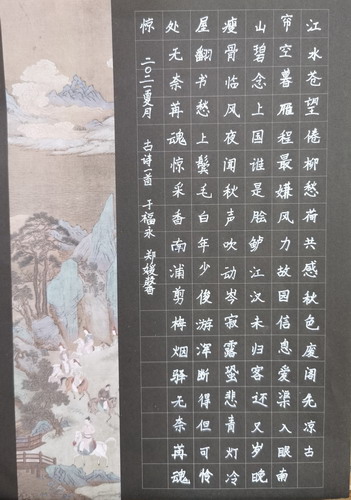 江水苍望倦柳愁荷共感秋色废阁先凉古
帘空暮雁程最嫌风力故园信息爱渠入眼南
山碧念上国谁是脍鲈江汉未归客还又岁晚
瘦骨临风夜闻秋声吹动岑寂露蛩悲青灯冷
屋翻书愁上鬓毛白年少俊游浑断得但可怜
处无奈苒魂惊采香南浦剪梅烟驿无奈苒魂
惊
二〇二一夏月 古诗一首 于福永 郑媛馨